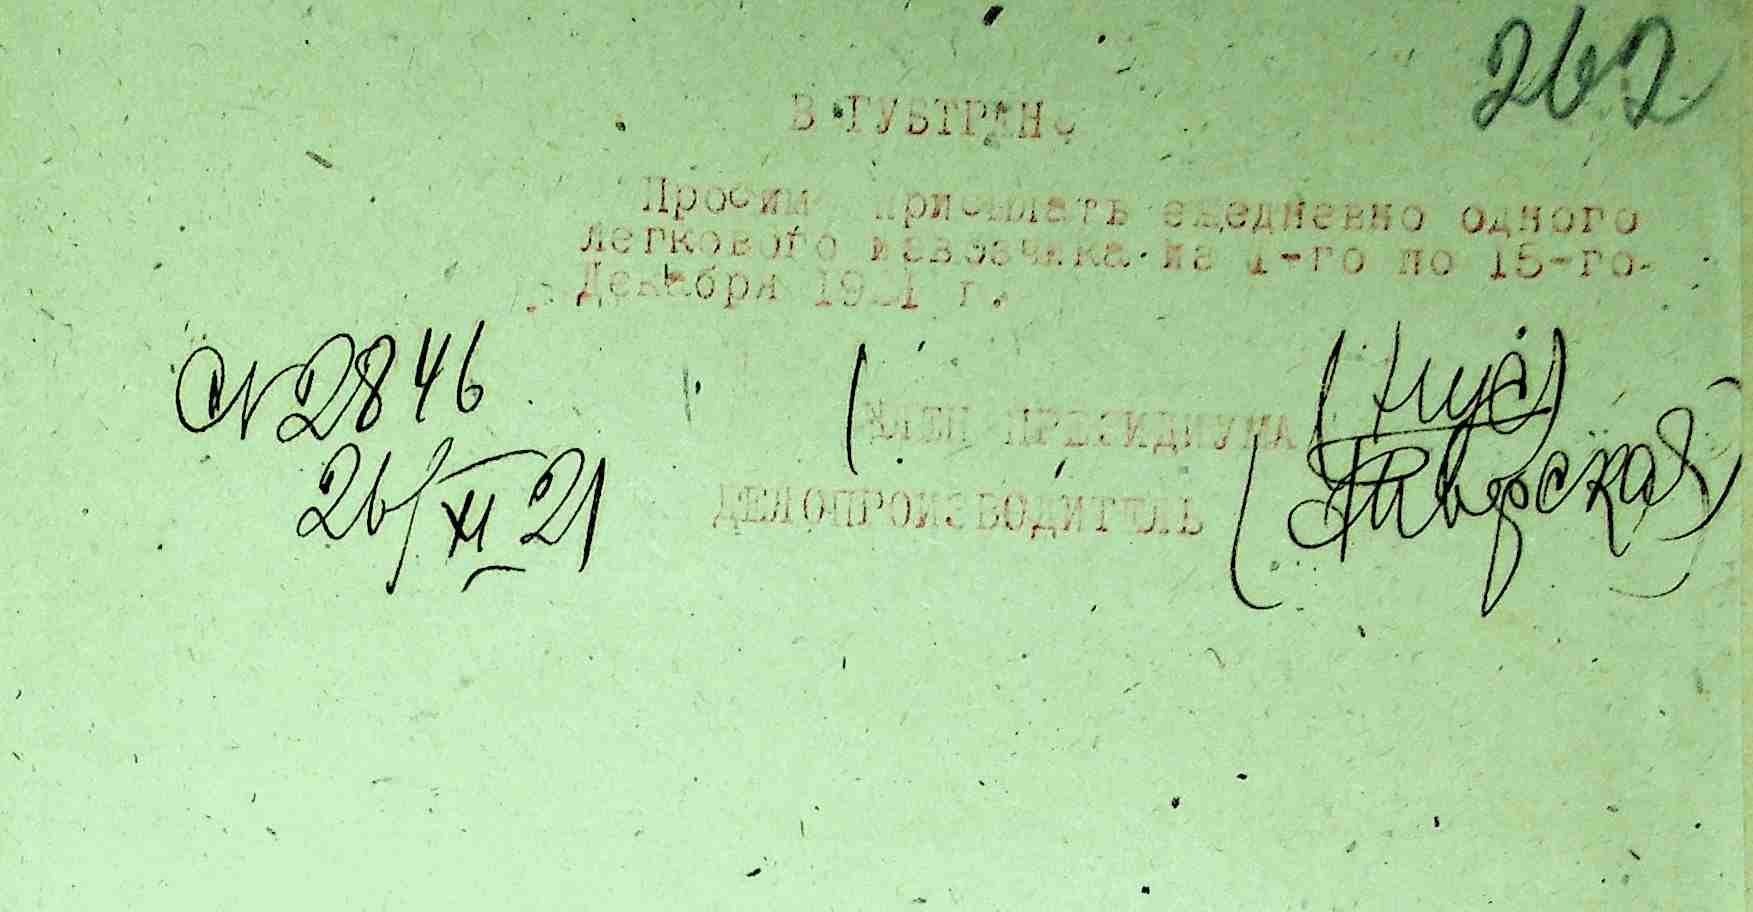 262
В ГУБТРАНС
Просим присылать ежедневно одного
легкового извозчика на 1-го по 15-го
Декабря 1921 г.
№ 2846
26/XI 21
ЧЛЕН ПРЕЗИДИУМА
ДЕЛОПРОИЗВОДИТЕЛЬ